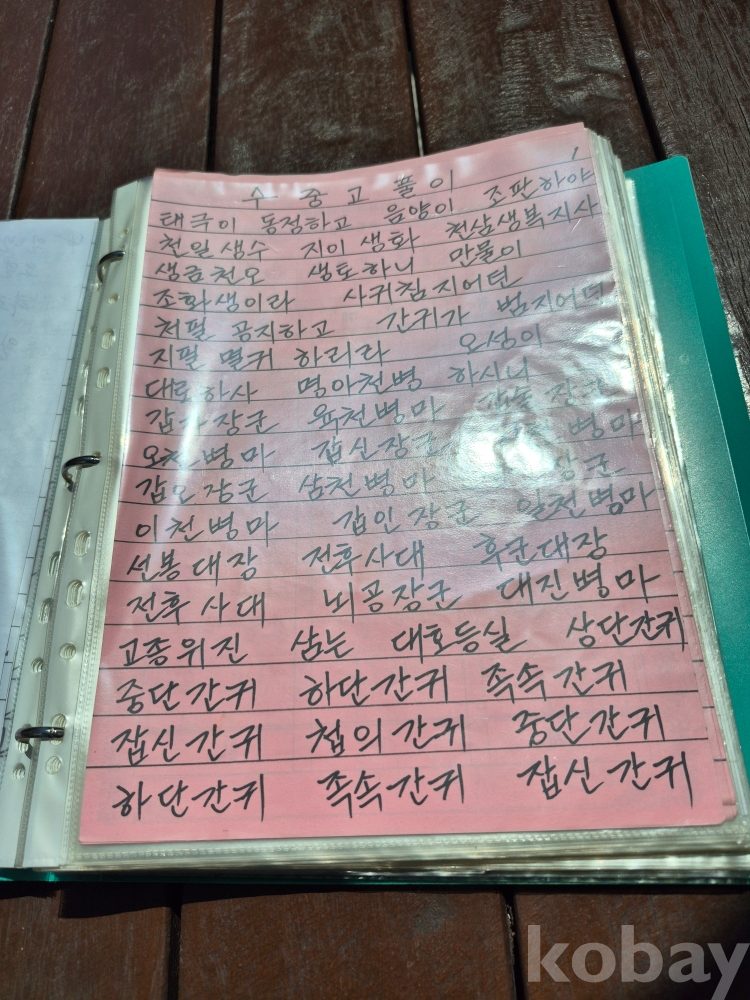 수 중 고 풀 이
태극이 동정하고 음양이 조판하야
천일생수 지이생화 천삼생복지사
생금천오 생토하니 만물이
조화생이라 사귀침지어던
천필 공지하고 간귀가 범지어던
지필 멸귀 하리라 오성이
대로하사 명아천병 하시니
장군 육천병마 장군
오천병마 갑신장군 병마
갑오장군 삼천병마 장군
이천병마 갑인장군 일천병마
선봉대장 전후사대 후군대장
전후사대 뇌공장군 대진병마
고종위진 삼능 대호등실 상단간귀
중단간귀 하단간귀 족속간귀
잡신간귀 첩의간귀 중단간귀
하단간귀 족속간귀 잡신간귀
kobay